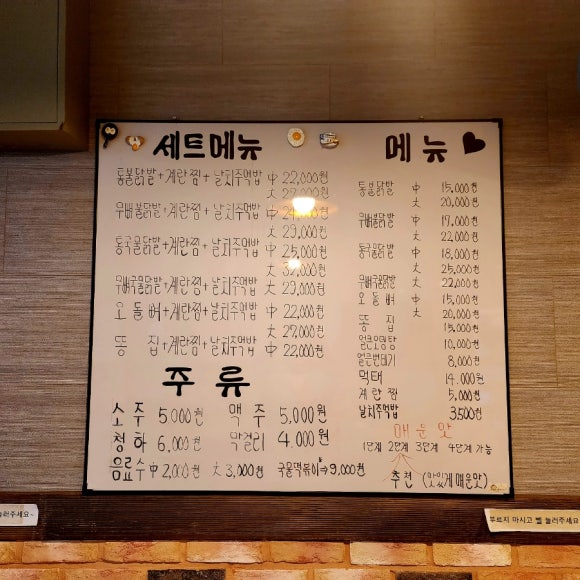 세트메뉴
통불닭발+계란찜+날치주먹밥 中 22,000원
大
무뼈불닭발+계란찜+날치주먹밥 中
大 29,000원
통국물닭발+계란찜+날치주먹밥 中 25,000원
大
무뼈국물닭발+계란찜+날치주먹밥 大 29,000원
오돌뼈+계란찜+날치주먹밥 中 22,000원
大 27,000원
똥집+계란찜+날치주먹밥 中 22,000원
주류
소주 5000원 맥주 5,000원
청하 6,000원 막걸리 4,000원
음료수 中 2,000원 大 3,000원 국물떡볶이⇒9,000원
메뉴
통불닭발 中 15,000원
大 20,000원
무뼈불닭발 中
大 22,000원
통국물닭발 中 18,000원
大 25,000원
무뼈국물닭발 大 22,000원
오돌뼈 中 15,000원
大 20,000원
똥집 15,000원
얼큰오뎅탕 10,000원
얼큰번데기 8,000원
먹태 14,000원
계란찜 5,000원
날치주먹밥 3,500원
매운맛
1단계 2단계 3단계 4단계 가능
추천 (맛있게 매운맛)
눌러주세요~
부르지 마시고 벨 눌러주세요